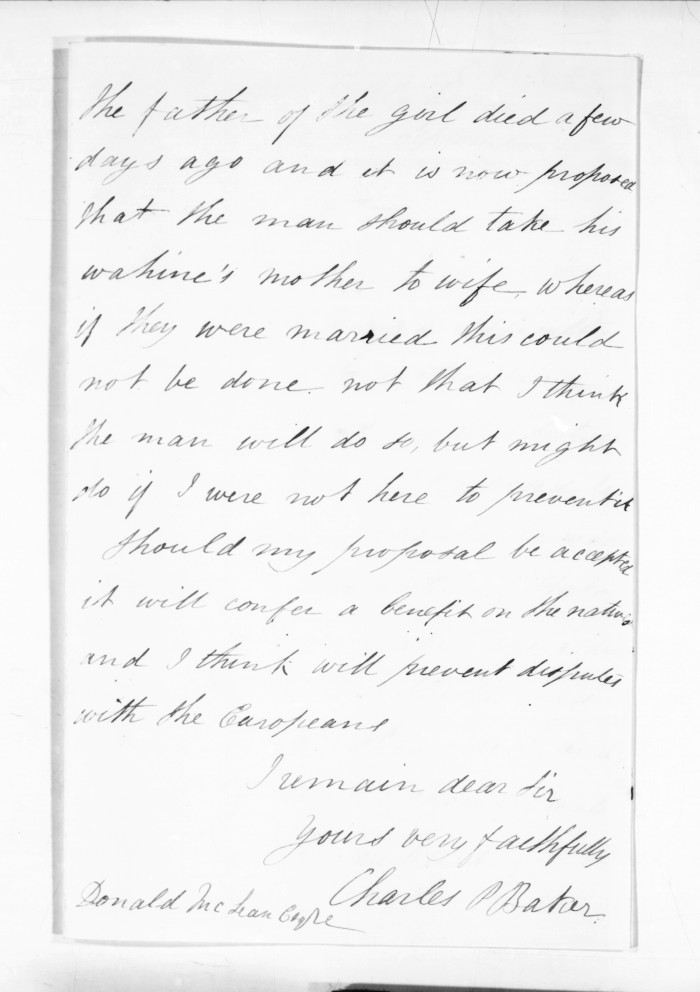 The father of the girl died a few
days ago and it is now proposed
that the man should take his
wahine's mother to wife, whereas
if they were married this could
not be done. not that I think
the man will do so, but might
do if I were not here to prevent it
Should my proposal be accepted
it will confer a benefit on the natives
and I think will prevent disputes
with the Europeans
I remain dear Sir
Yours very faithfully
Charles P Baker.
Donald McLean Esqre